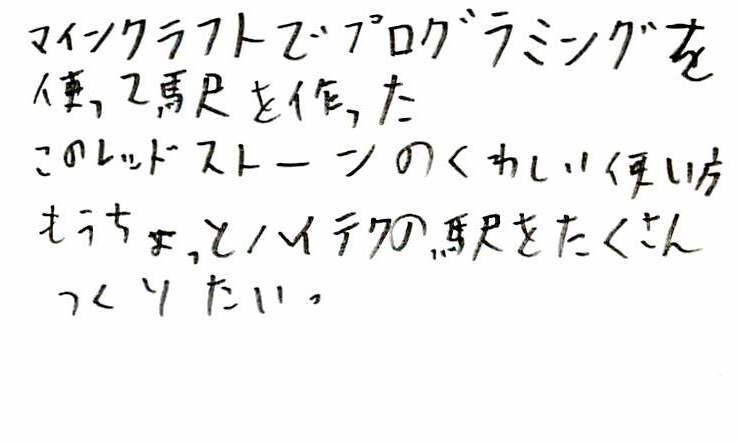 マインクラフトでプログラミングを
使って駅を作った
このレッドストーンのくわしい使い方
もうちょっとハイテクの駅をたくさん
つくりたい。